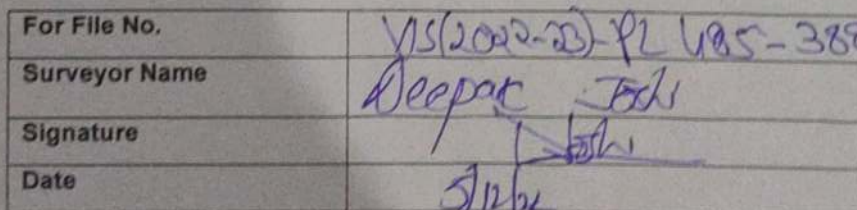 For File No. VIS(2022-23)-PL 485-388
Surveyor Name Deepak Joshi
Signature Joshi
Date 5/12/22